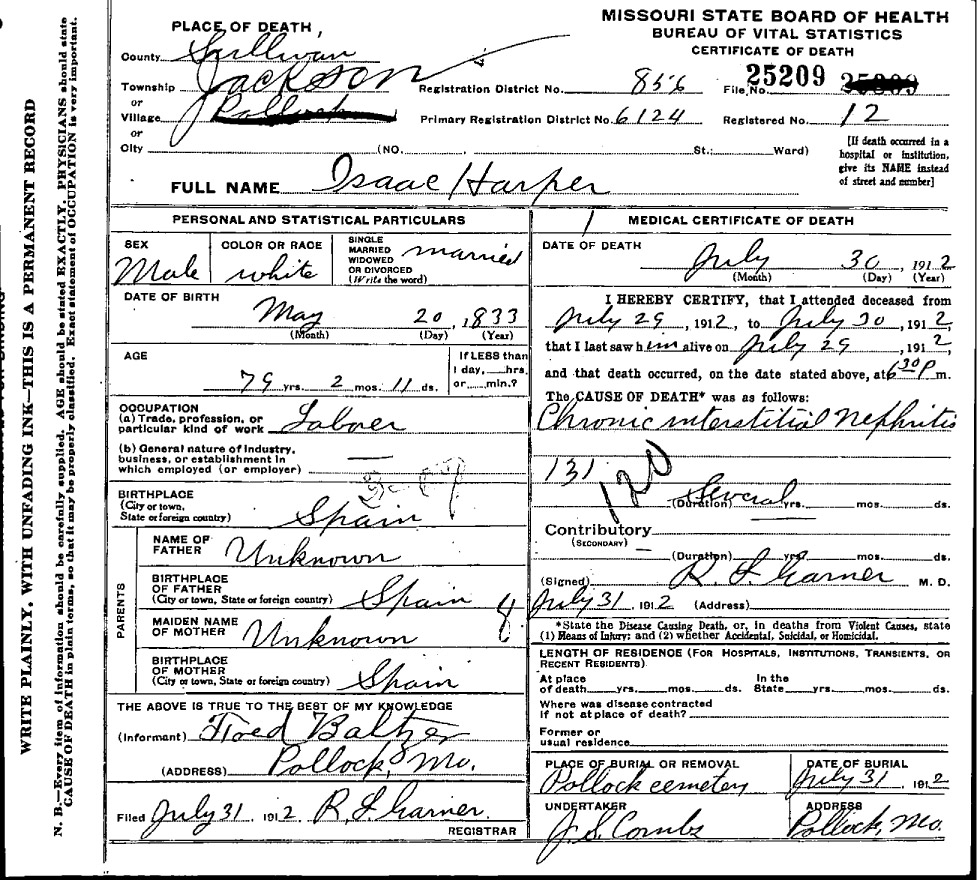 MISSOURI STATE BOARD OF HEALTH
BUREAU OF VITAL STATISTICS
CERTIFICATE OF DEATH
PLACE OF DEATH
County Sullivan
Township Jackson
or
Village Pollock
or
City (NO. St.; Ward)
Registration District No. 856
File No. 25209 25309
Primary Registration District No. 6124
Registered No. 12
[If death occurred in a
hospital or institution,
give its NAME instead
of street and number]
FULL NAME Isaac Harper
PERSONAL AND STATISTICAL PARTICULARS
SEX
Male
COLOR OR RACE
white
SINGLE
MARRIED
WIDOWED
OR DIVORCED
(Write the word)
married
DATE OF BIRTH
May 20, 1833
(Month) (Day) (Year)
AGE
79 yrs. 2 mos. 11 ds.
If LESS than
1 day, hrs.
or min.?
OCCUPATION
(a) Trade, profession, or
particular kind of work Laborer
(b) General nature of industry,
business, or establishment in
which employed (or employer)
BIRTHPLACE
(City or town,
State or foreign country) Spain
PARENTS
NAME OF
FATHER Unknown
BIRTHPLACE
OF FATHER
(City or town, State or foreign country) Spain
MAIDEN NAME
OF MOTHER Unknown
BIRTHPLACE
OF MOTHER
(City or town, State or foreign country) Spain
THE ABOVE IS TRUE TO THE BEST OF MY KNOWLEDGE
(Informant) Fred Baltzer
(ADDRESS) Pollock, Mo.
Filed July 31, 1912 R. L. Garner
REGISTRAR
MEDICAL CERTIFICATE OF DEATH
DATE OF DEATH
July 30, 1912
(Month) (Day) (Year)
I HEREBY CERTIFY, that I attended deceased from
July 29, 1912, to July 30, 1912,
that I last saw him alive on July 29, 1912,
and that death occurred, on the date stated above, at 6 30 P m.
The CAUSE OF DEATH* was as follows:
Chronic interstitial Nephritis
131
120
(Duration) Several yrs. mos. ds.
Contributory
(SECONDARY)
(Duration) yrs. mos. ds.
(Signed) R. L. Garner M. D.
July 31, 1912 (Address)
*State the Disease Causing Death, or, in deaths from Violent Causes, state
(1) Means of Injury; and (2) whether Accidental, Suicidal, or Homicidal.
LENGTH OF RESIDENCE (FOR HOSPITALS, INSTITUTIONS, TRANSIENTS, OR
RECENT RESIDENTS)
At place
of death yrs. mos. ds.
In the
State yrs. mos. ds.
Where was disease contracted
if not at place of death?
Former or
usual residence
PLACE OF BURIAL OR REMOVAL
Pollock cemetery
DATE OF BURIAL
July 31 1912
UNDERTAKER
J. S. Combs
ADDRESS
Pollock, Mo.
WRITE PLAINLY, WITH UNFADING INK—THIS IS A PERMANENT RECORD
N. B.—Every item of information should be carefully supplied. AGE should be stated EXACTLY. PHYSICIANS should state
CAUSE OF DEATH in plain terms, so that it may be properly classified. Exact statement of OCCUPATION is very important.